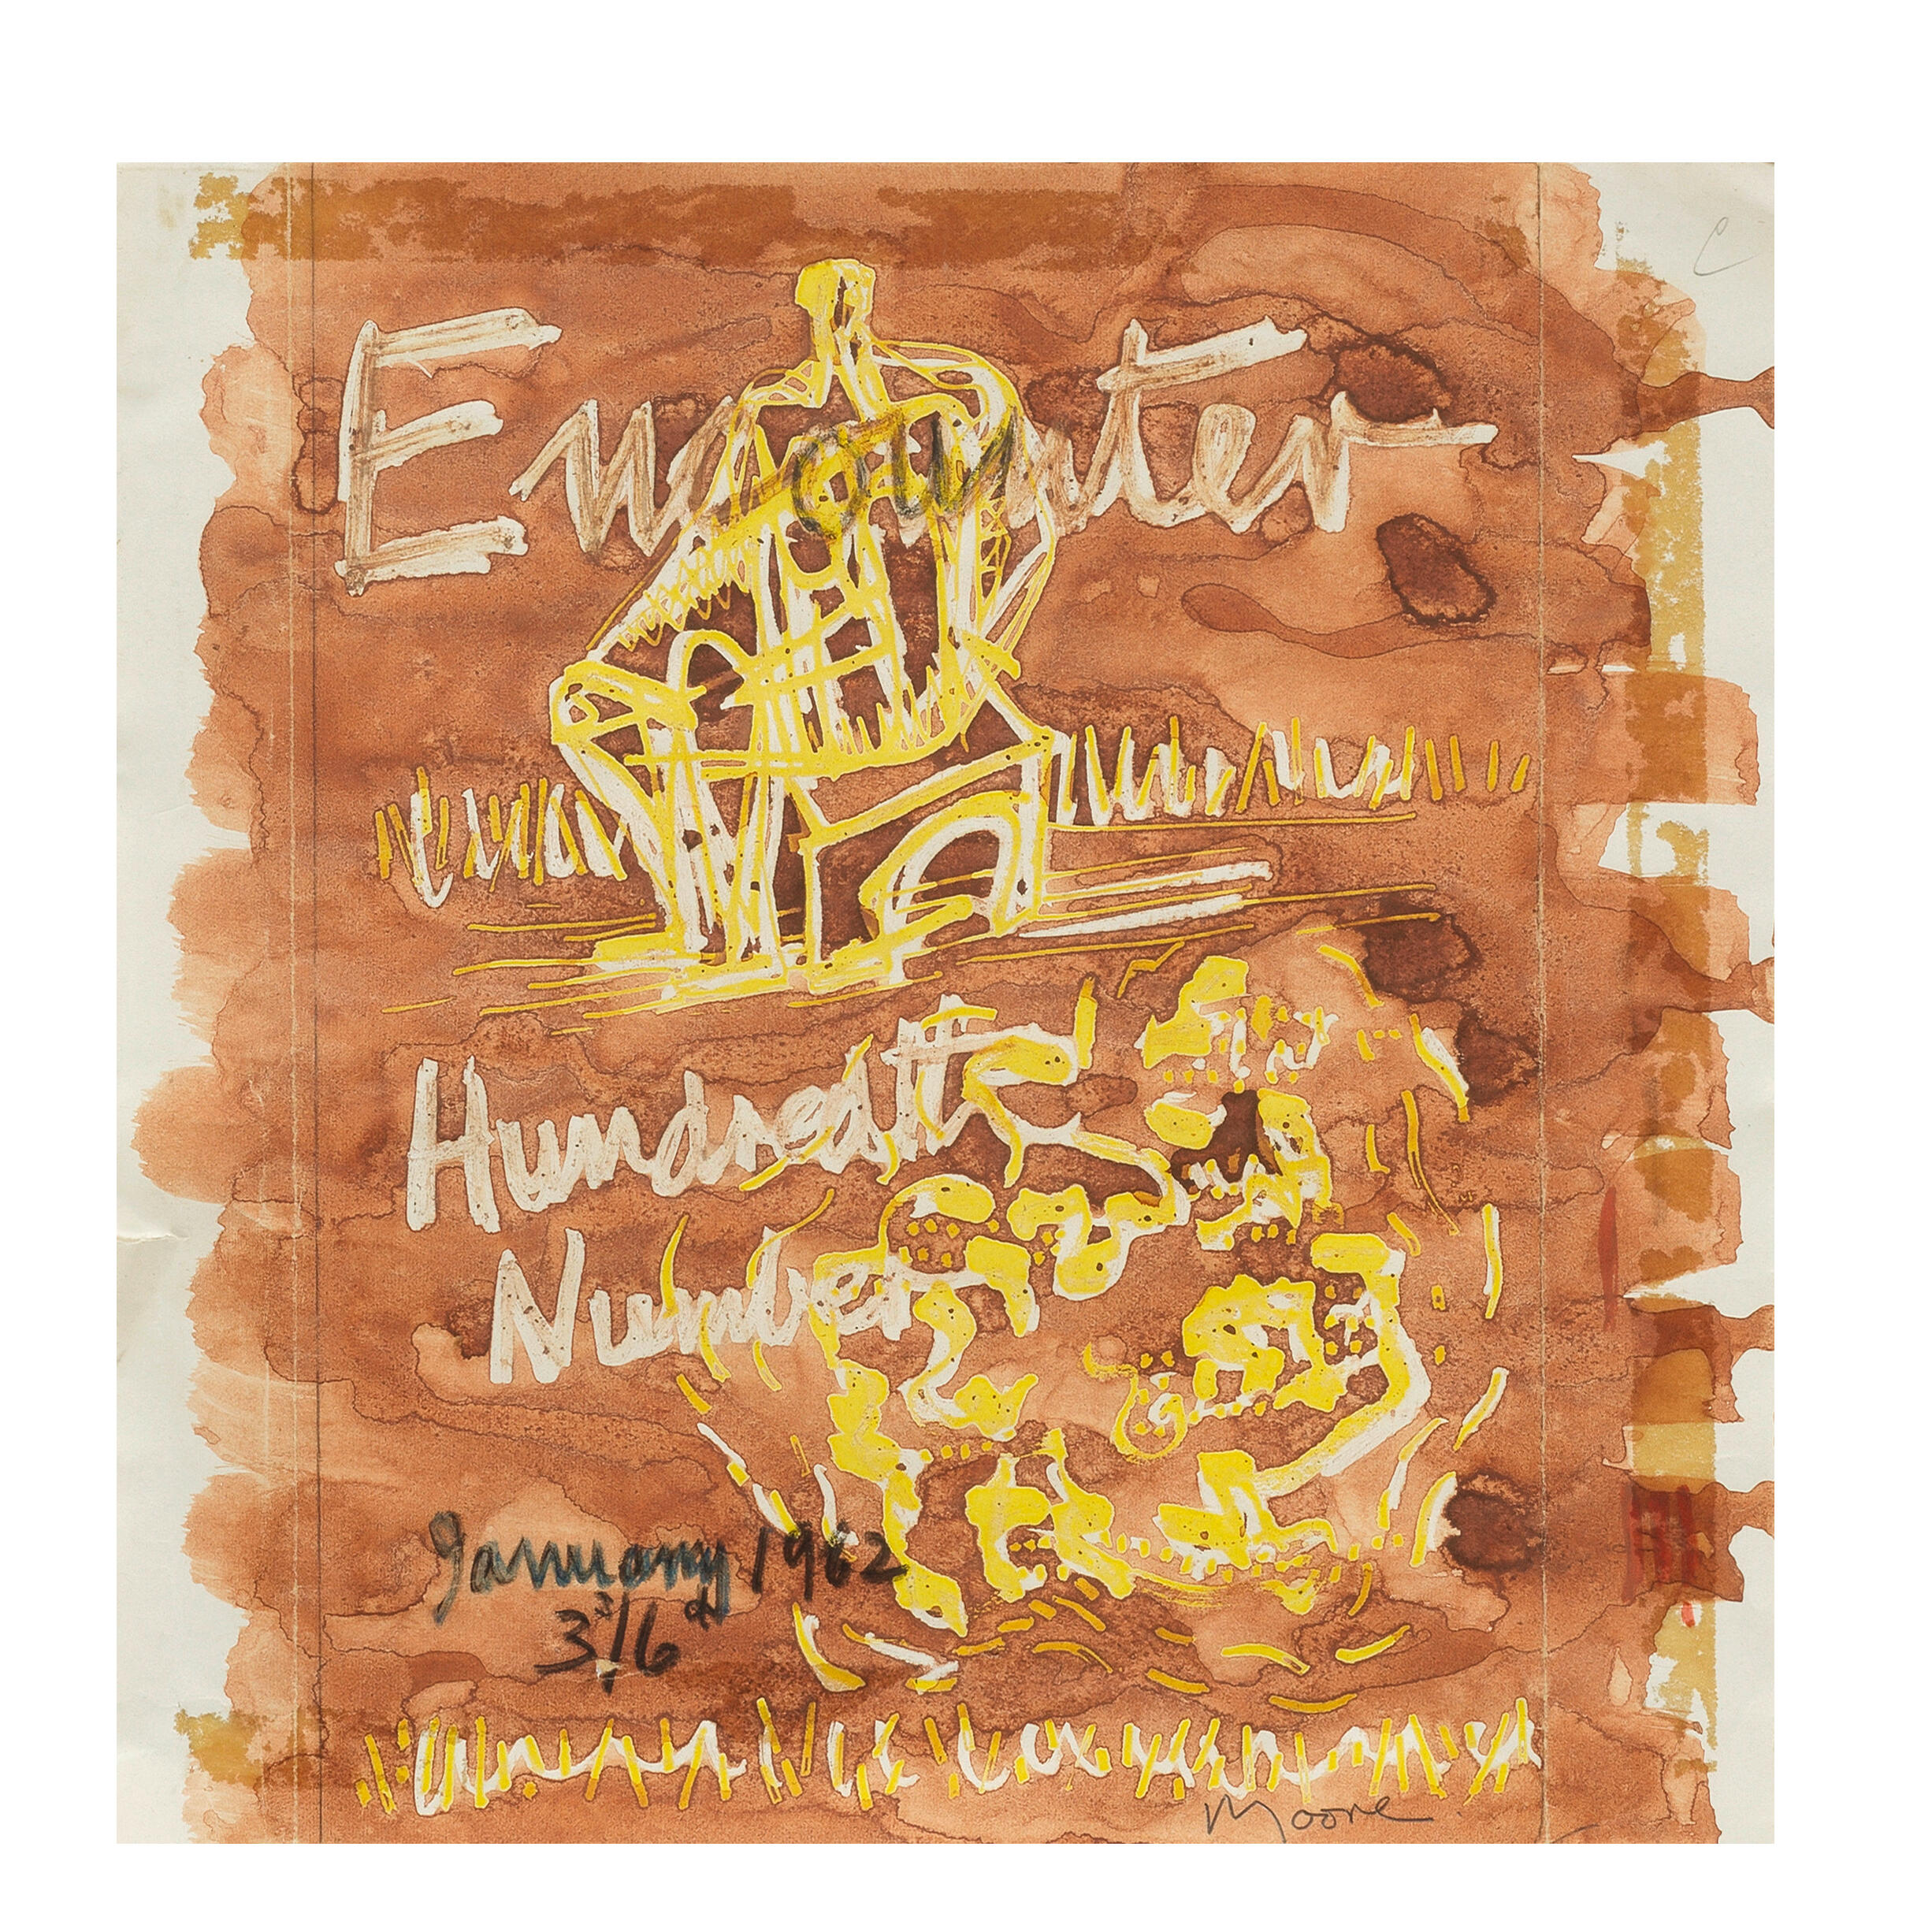 Encounter
Hundredth
Number
January 1962
3s/6d
Moore
C